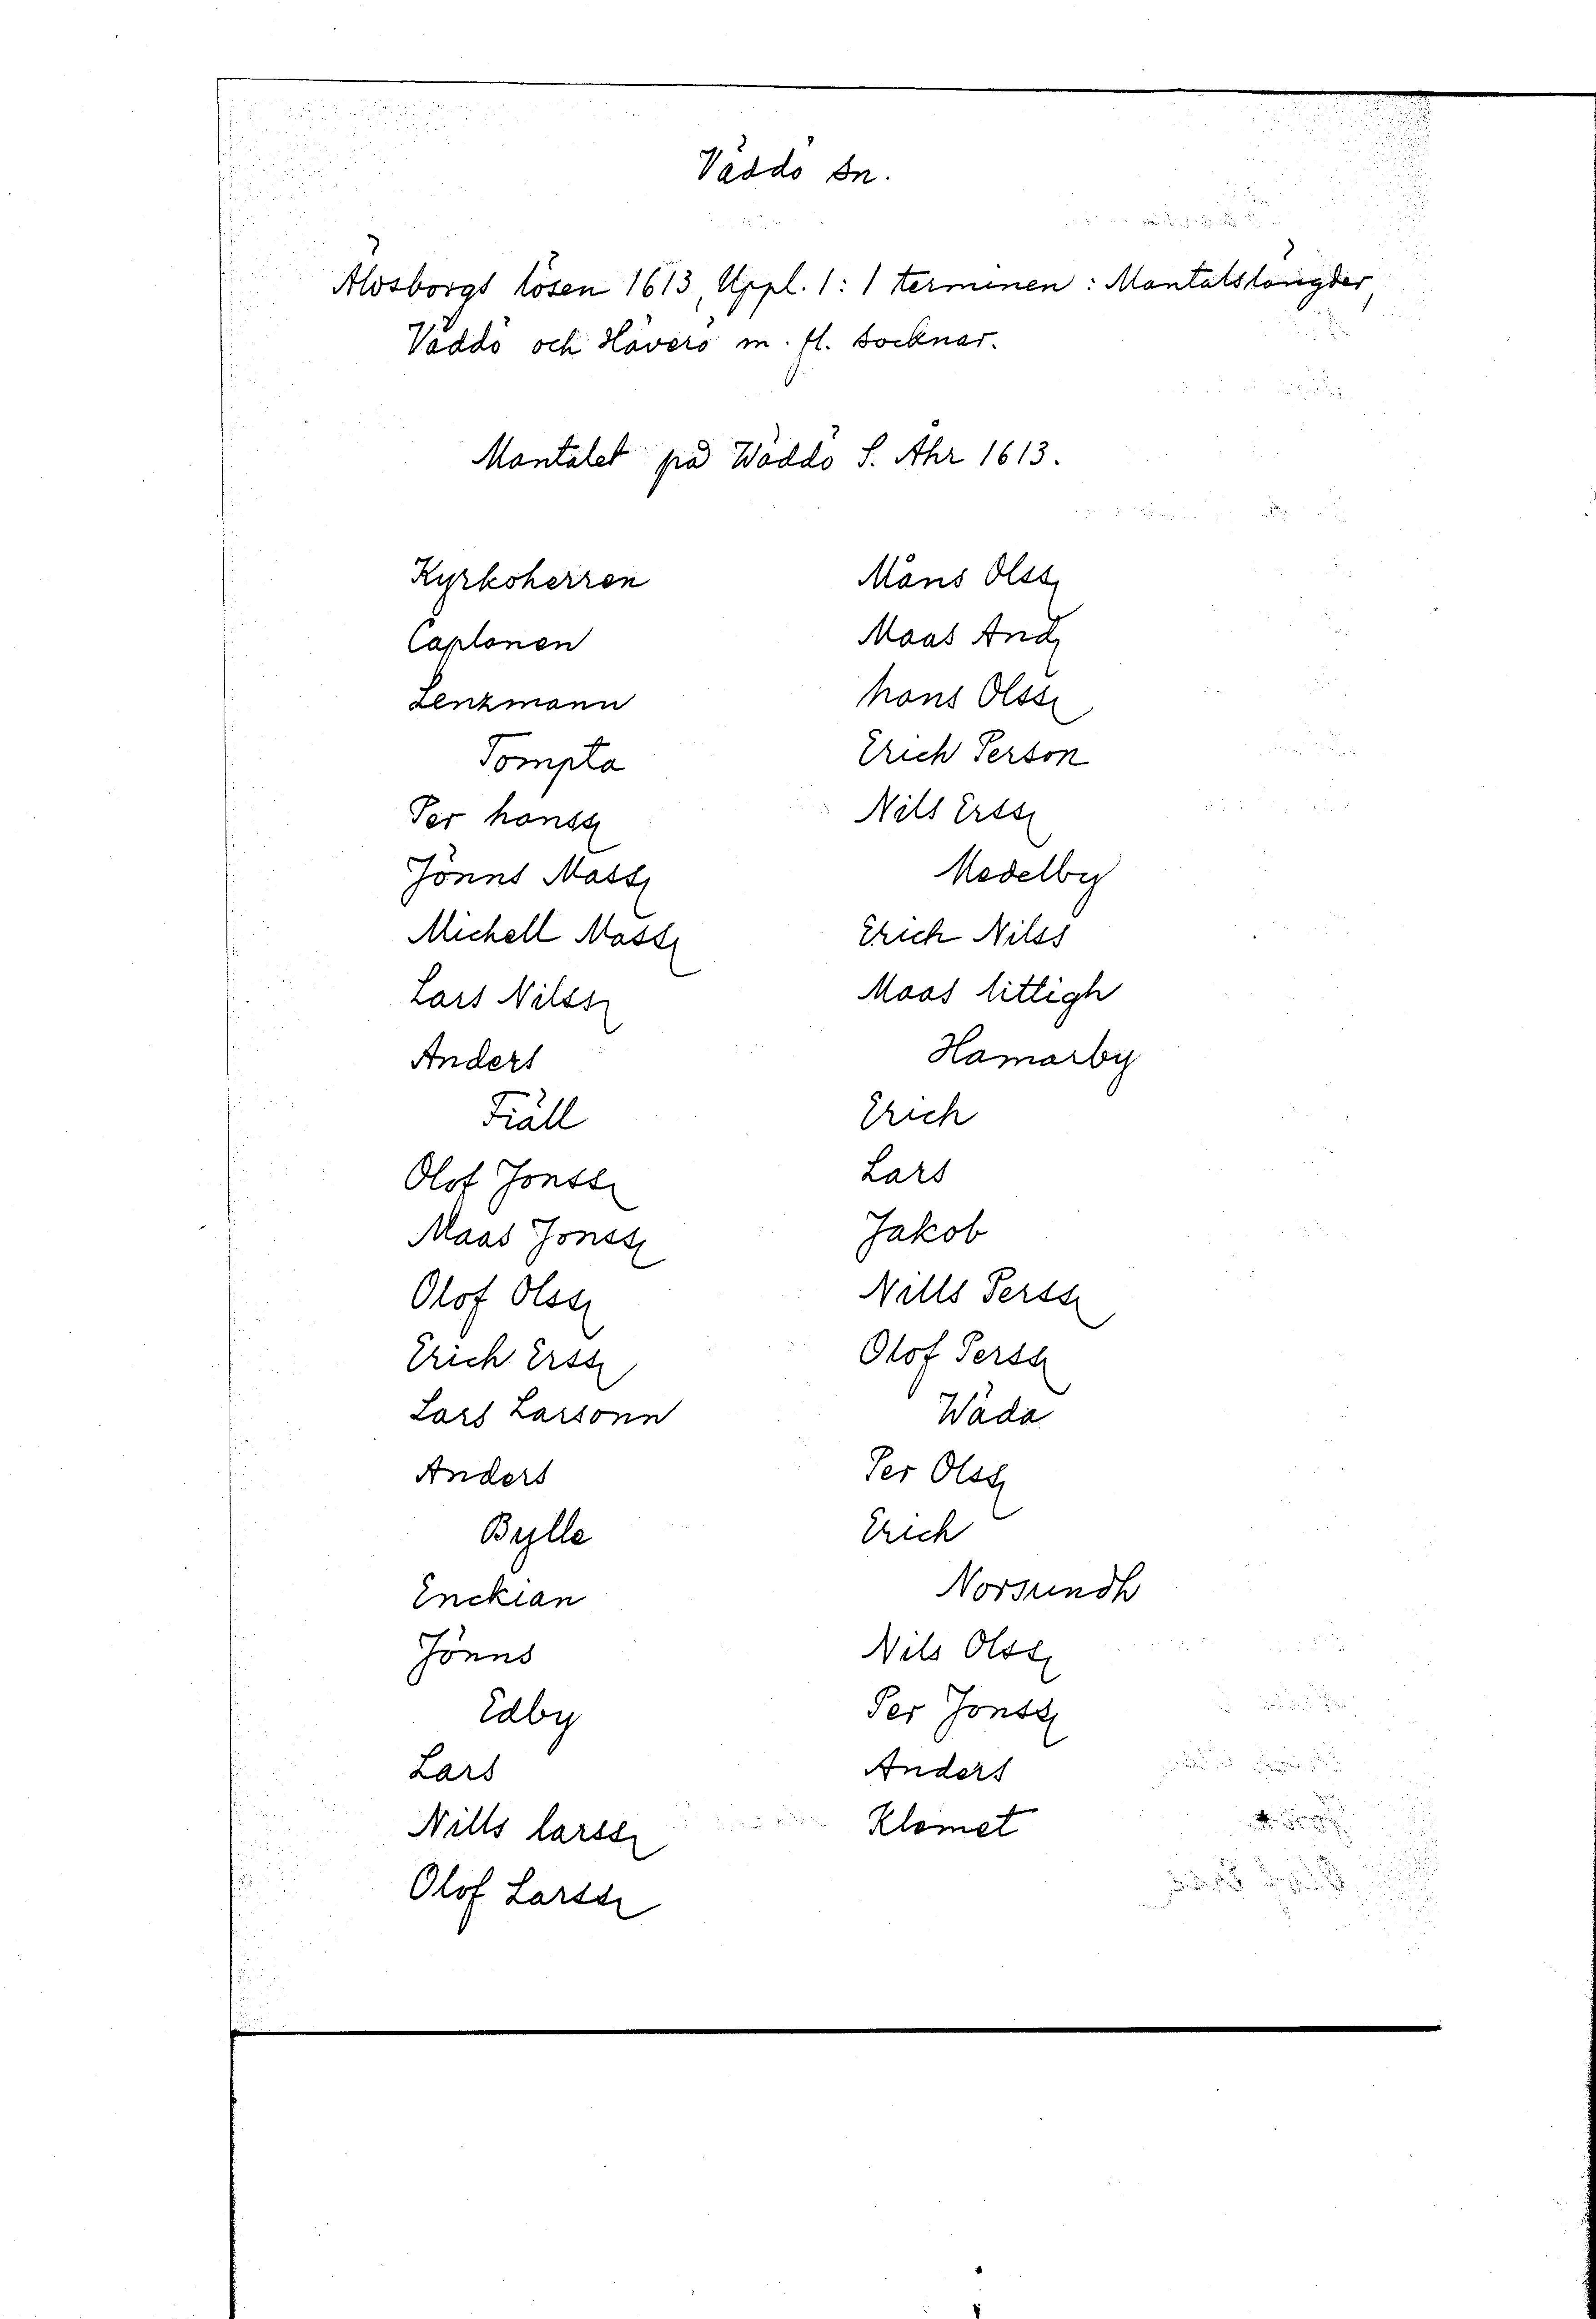 Väddö sn.
Älvsborgs lösen 1613, Uppl. 1: 1 terminen: Mantalslängder,
Väddö och Häverö m. fl. socknar.
Mantalet på Wäddö S. Åhr 1613.
Kyrkoherren
Caplanen
Lenzmann
Tompta
Per hanss
Jönns Mass
Michell Mass
Lars Nilss
Anders
Fiäll
Olof Jonss
Maas Jonss
Olof Olss
Erich Erss
Lars Larsonn
Anders
Bylle
Enckian
Jönns
Edby
Lars
Nills larss
Olof Larss
Måns Olss
Maas And
hans Olss
Erich Person
Nils Erss
Medelby
Erich Nilss
Maas littigh
Hamarby
Erich
Lars
Jakob
Nills Perss
Olof Perss
Wäda
Per Olss
Erich
Norsundh
Nils Olss
Per Jonss
Anders
Klemet